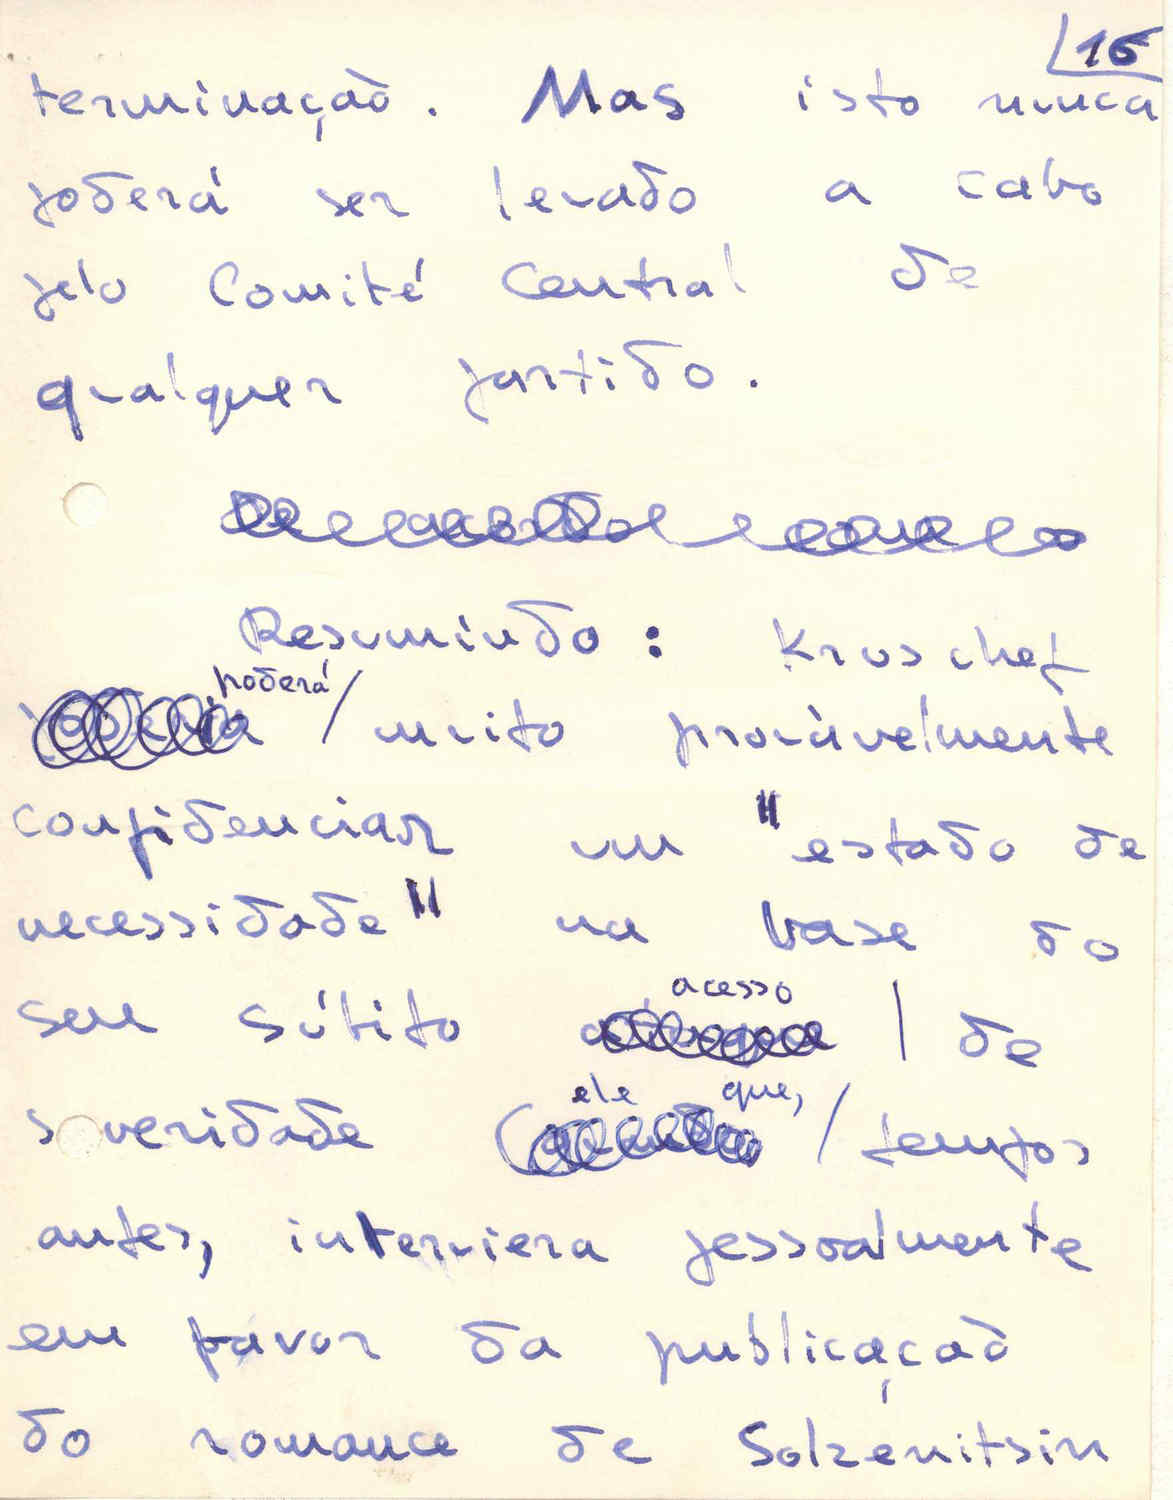 16
terminação. Mas isto nunca
poderá ser levado a cabo
pelo Comité Central de
qualquer partido.
Resumindo: Kruschef
poderá/
muito provàvelmente
confidenciar um "estado de
necessidade" na base do
acesso
seu súbito | de
severidade
ele que,
( / tempos
antes, interviera pessoalmente
em favor da publicação
do romance de Solzenitsin